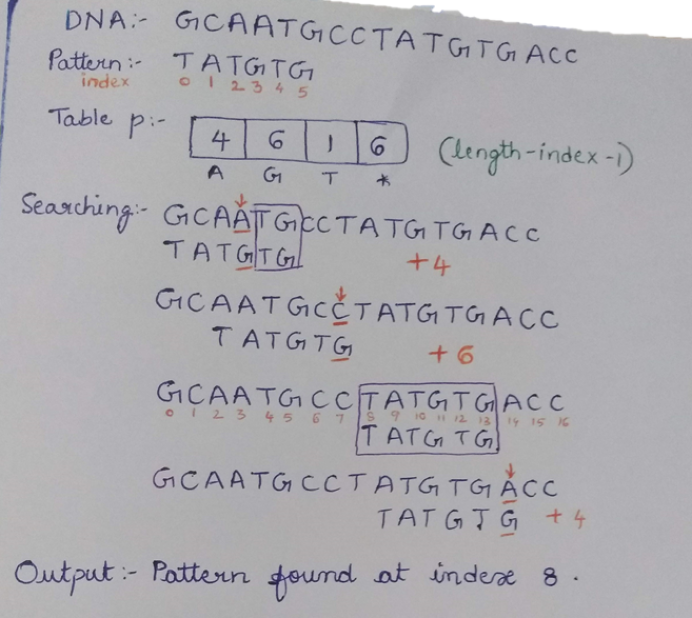 DNA:- GCAATGCCTATGTGACC
Pattern:- TATGTG
index 0 1 2 3 4 5
Table p:- 4 6 1 6 (length-index-1)
A G T *
Searching:- GCAATGCCTATGTGACC
TATGTG +4
GCAATGCCTATGTGACC
TATGTG +6
GCAATGCCTATGTGACC
0 1 2 3 4 5 6 7 8 9 10 11 12 13 14 15 16
TATGTG
GCAATGCCTATGTGACC
TATGTG +4
Output:- Pattern found at index 8.